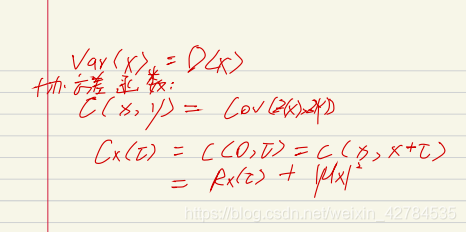 Var(x) = D(x)
协方差函数:
C(x,y) = Cov(Z(x),Z(y))
Cx(τ) = C(0,τ) = C(x, x+τ)
= Rx(τ) + |μx|²
https://blog.csdn.net/weixin_42784535